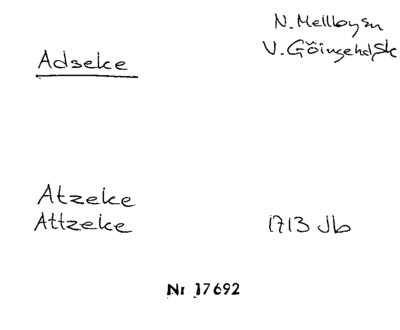 N. Mellbysn
V. Göingehd, Sk
Adseke
Atzeke
Attzeke 1713 Jb
Nr 17692